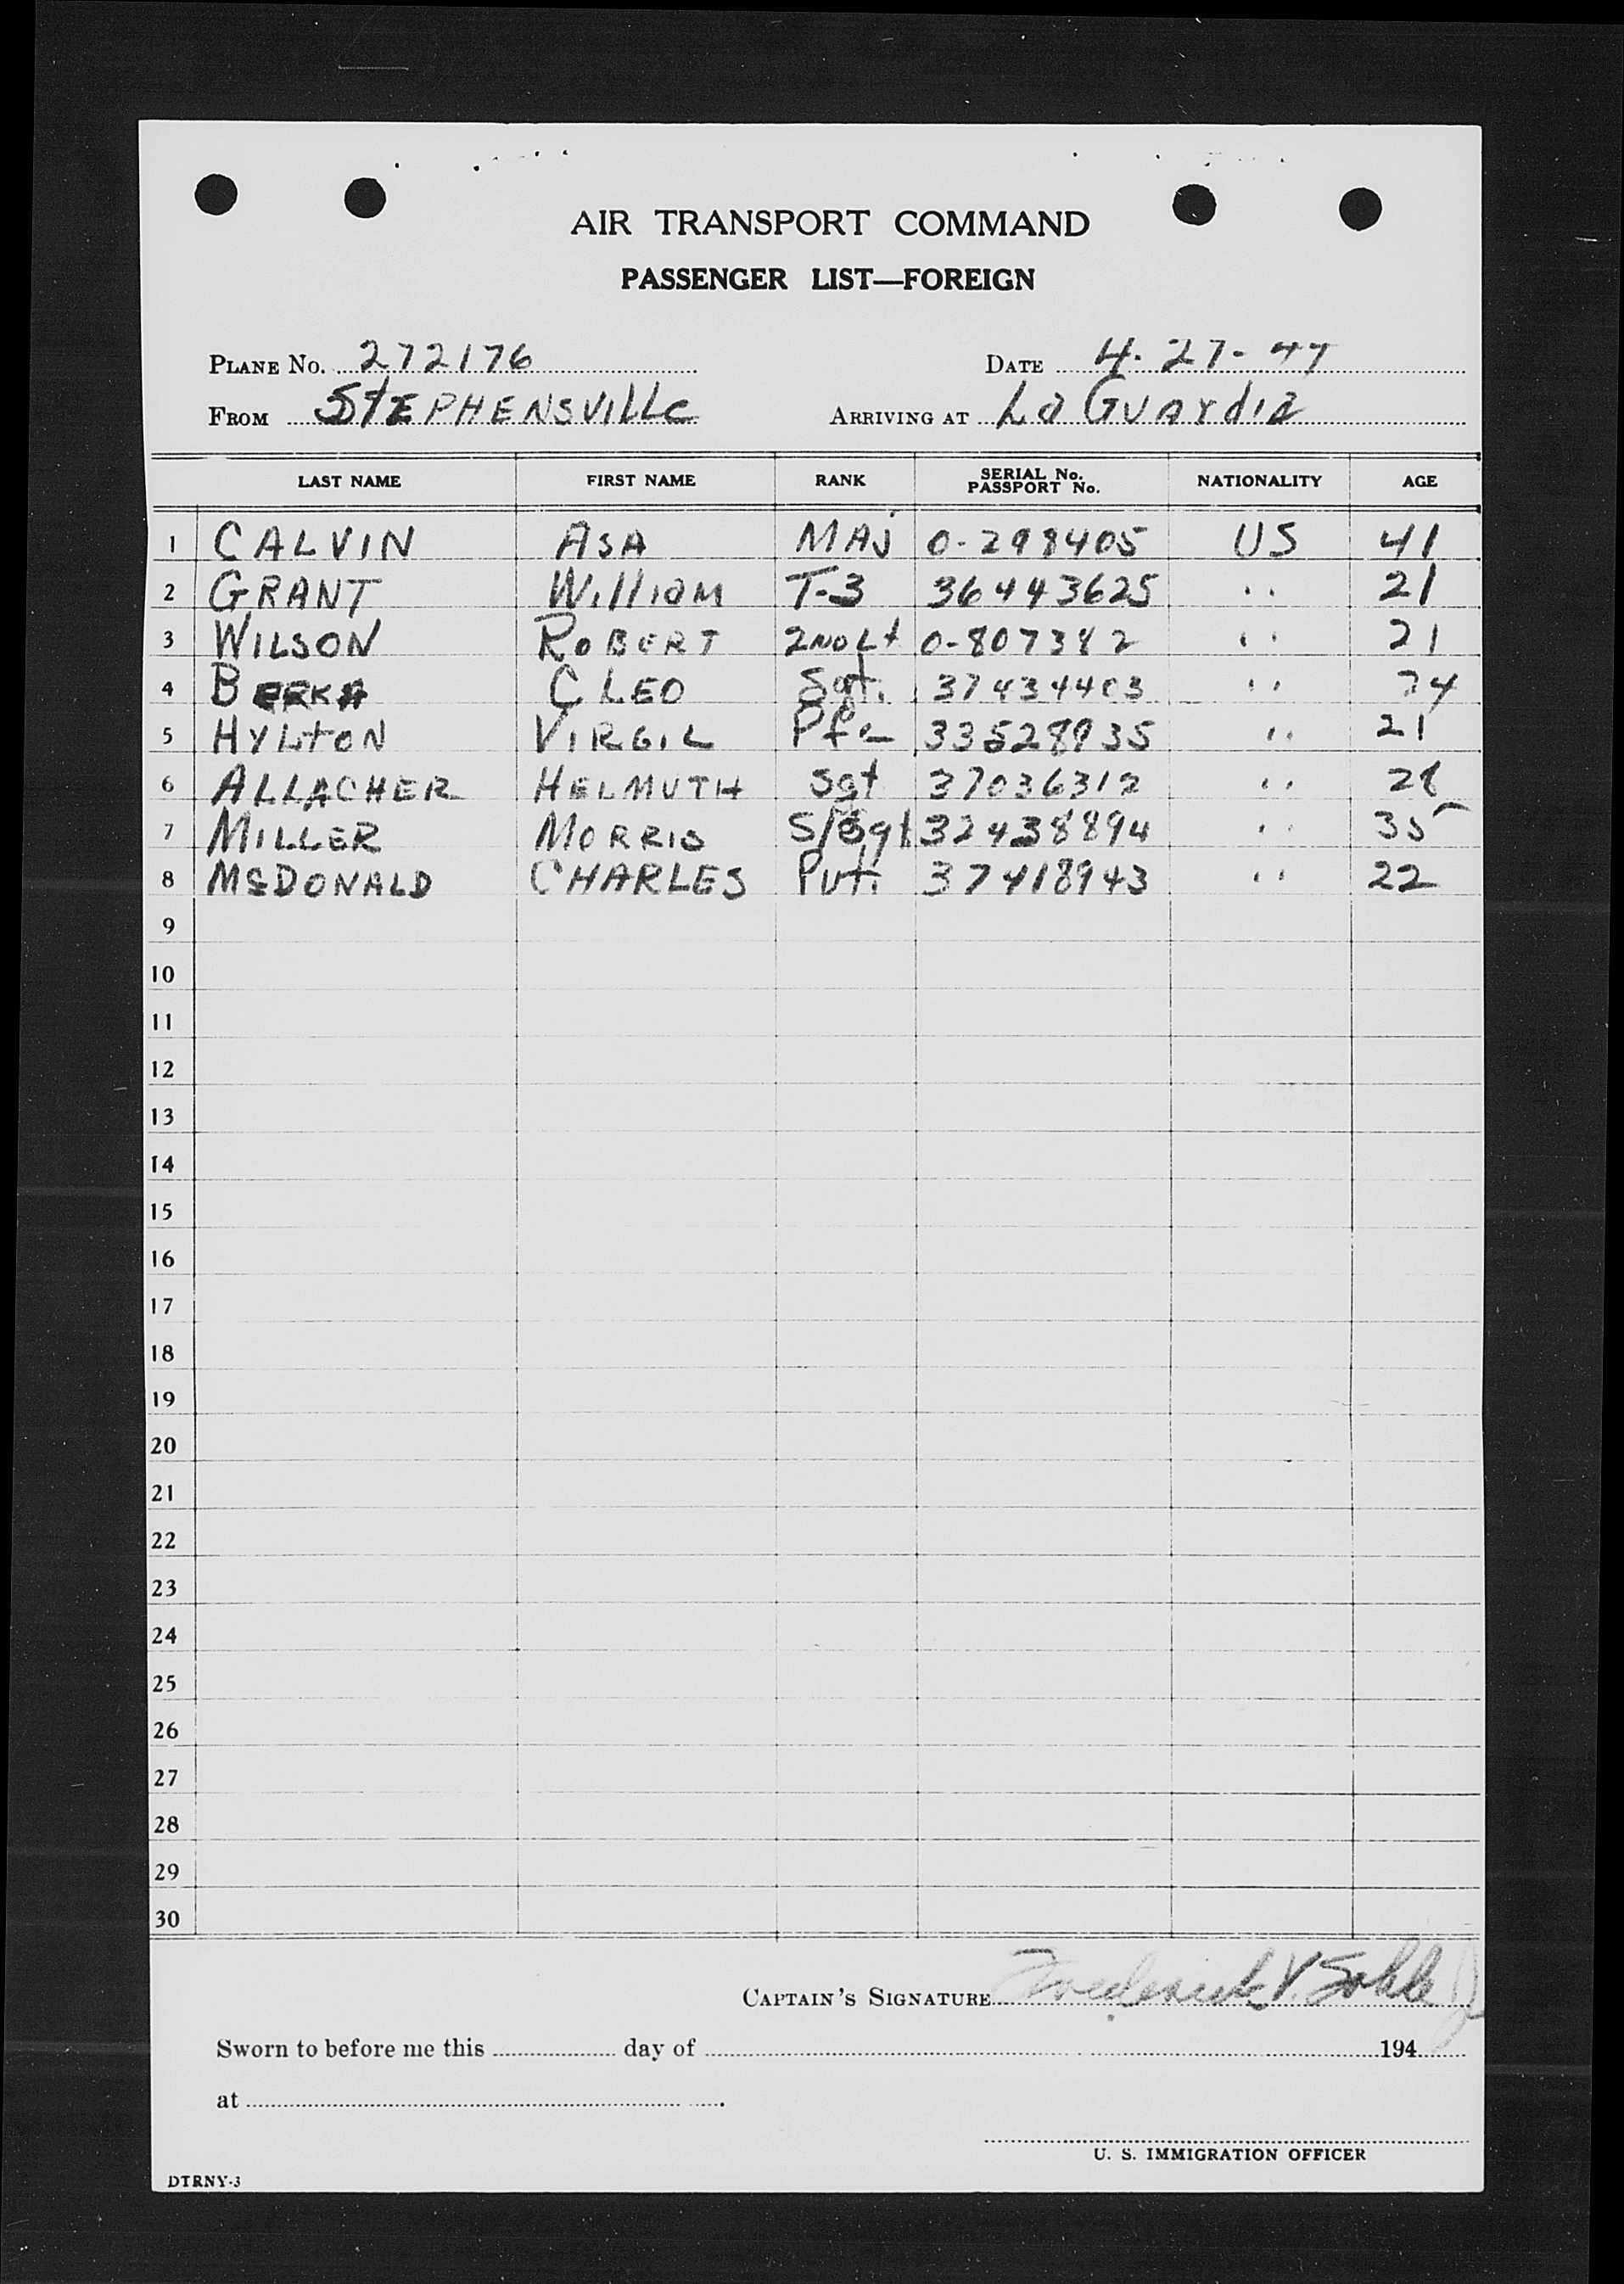 AIR TRANSPORT COMMAND
PASSENGER LIST—FOREIGN
PLANE No. 272176 DATE 4-27-47
FROM STEPHENSVILLE ARRIVING AT La Guardia
LAST NAME FIRST NAME RANK SERIAL No. PASSPORT No. NATIONALITY AGE
1 CALVIN ASA MAJ 0-298405 US 41
2 GRANT WilliAM T-3 36443625 " 21
3 WILSON ROBERT 2ND Lt 0-807382 " 21
4 CLEO Sgt. 37434403 " 24
5 HYLtON VIRGIL Pfc 33528935 " 21
6 ALLACHER HELMUTH Sgt 37036312 " 28
7 MILLER MORRIS S/Sgt 32438894 " 35
8 McDONALD CHARLES Pvt. 37418943 " 22
9
10
11
12
13
14
15
16
17
18
19
20
21
22
23
24
25
26
27
28
29
30
CAPTAIN'S SIGNATURE Frederick V. Sohle Jr
Sworn to before me this day of 194
at .
U. S. IMMIGRATION OFFICER
DTRNY-3